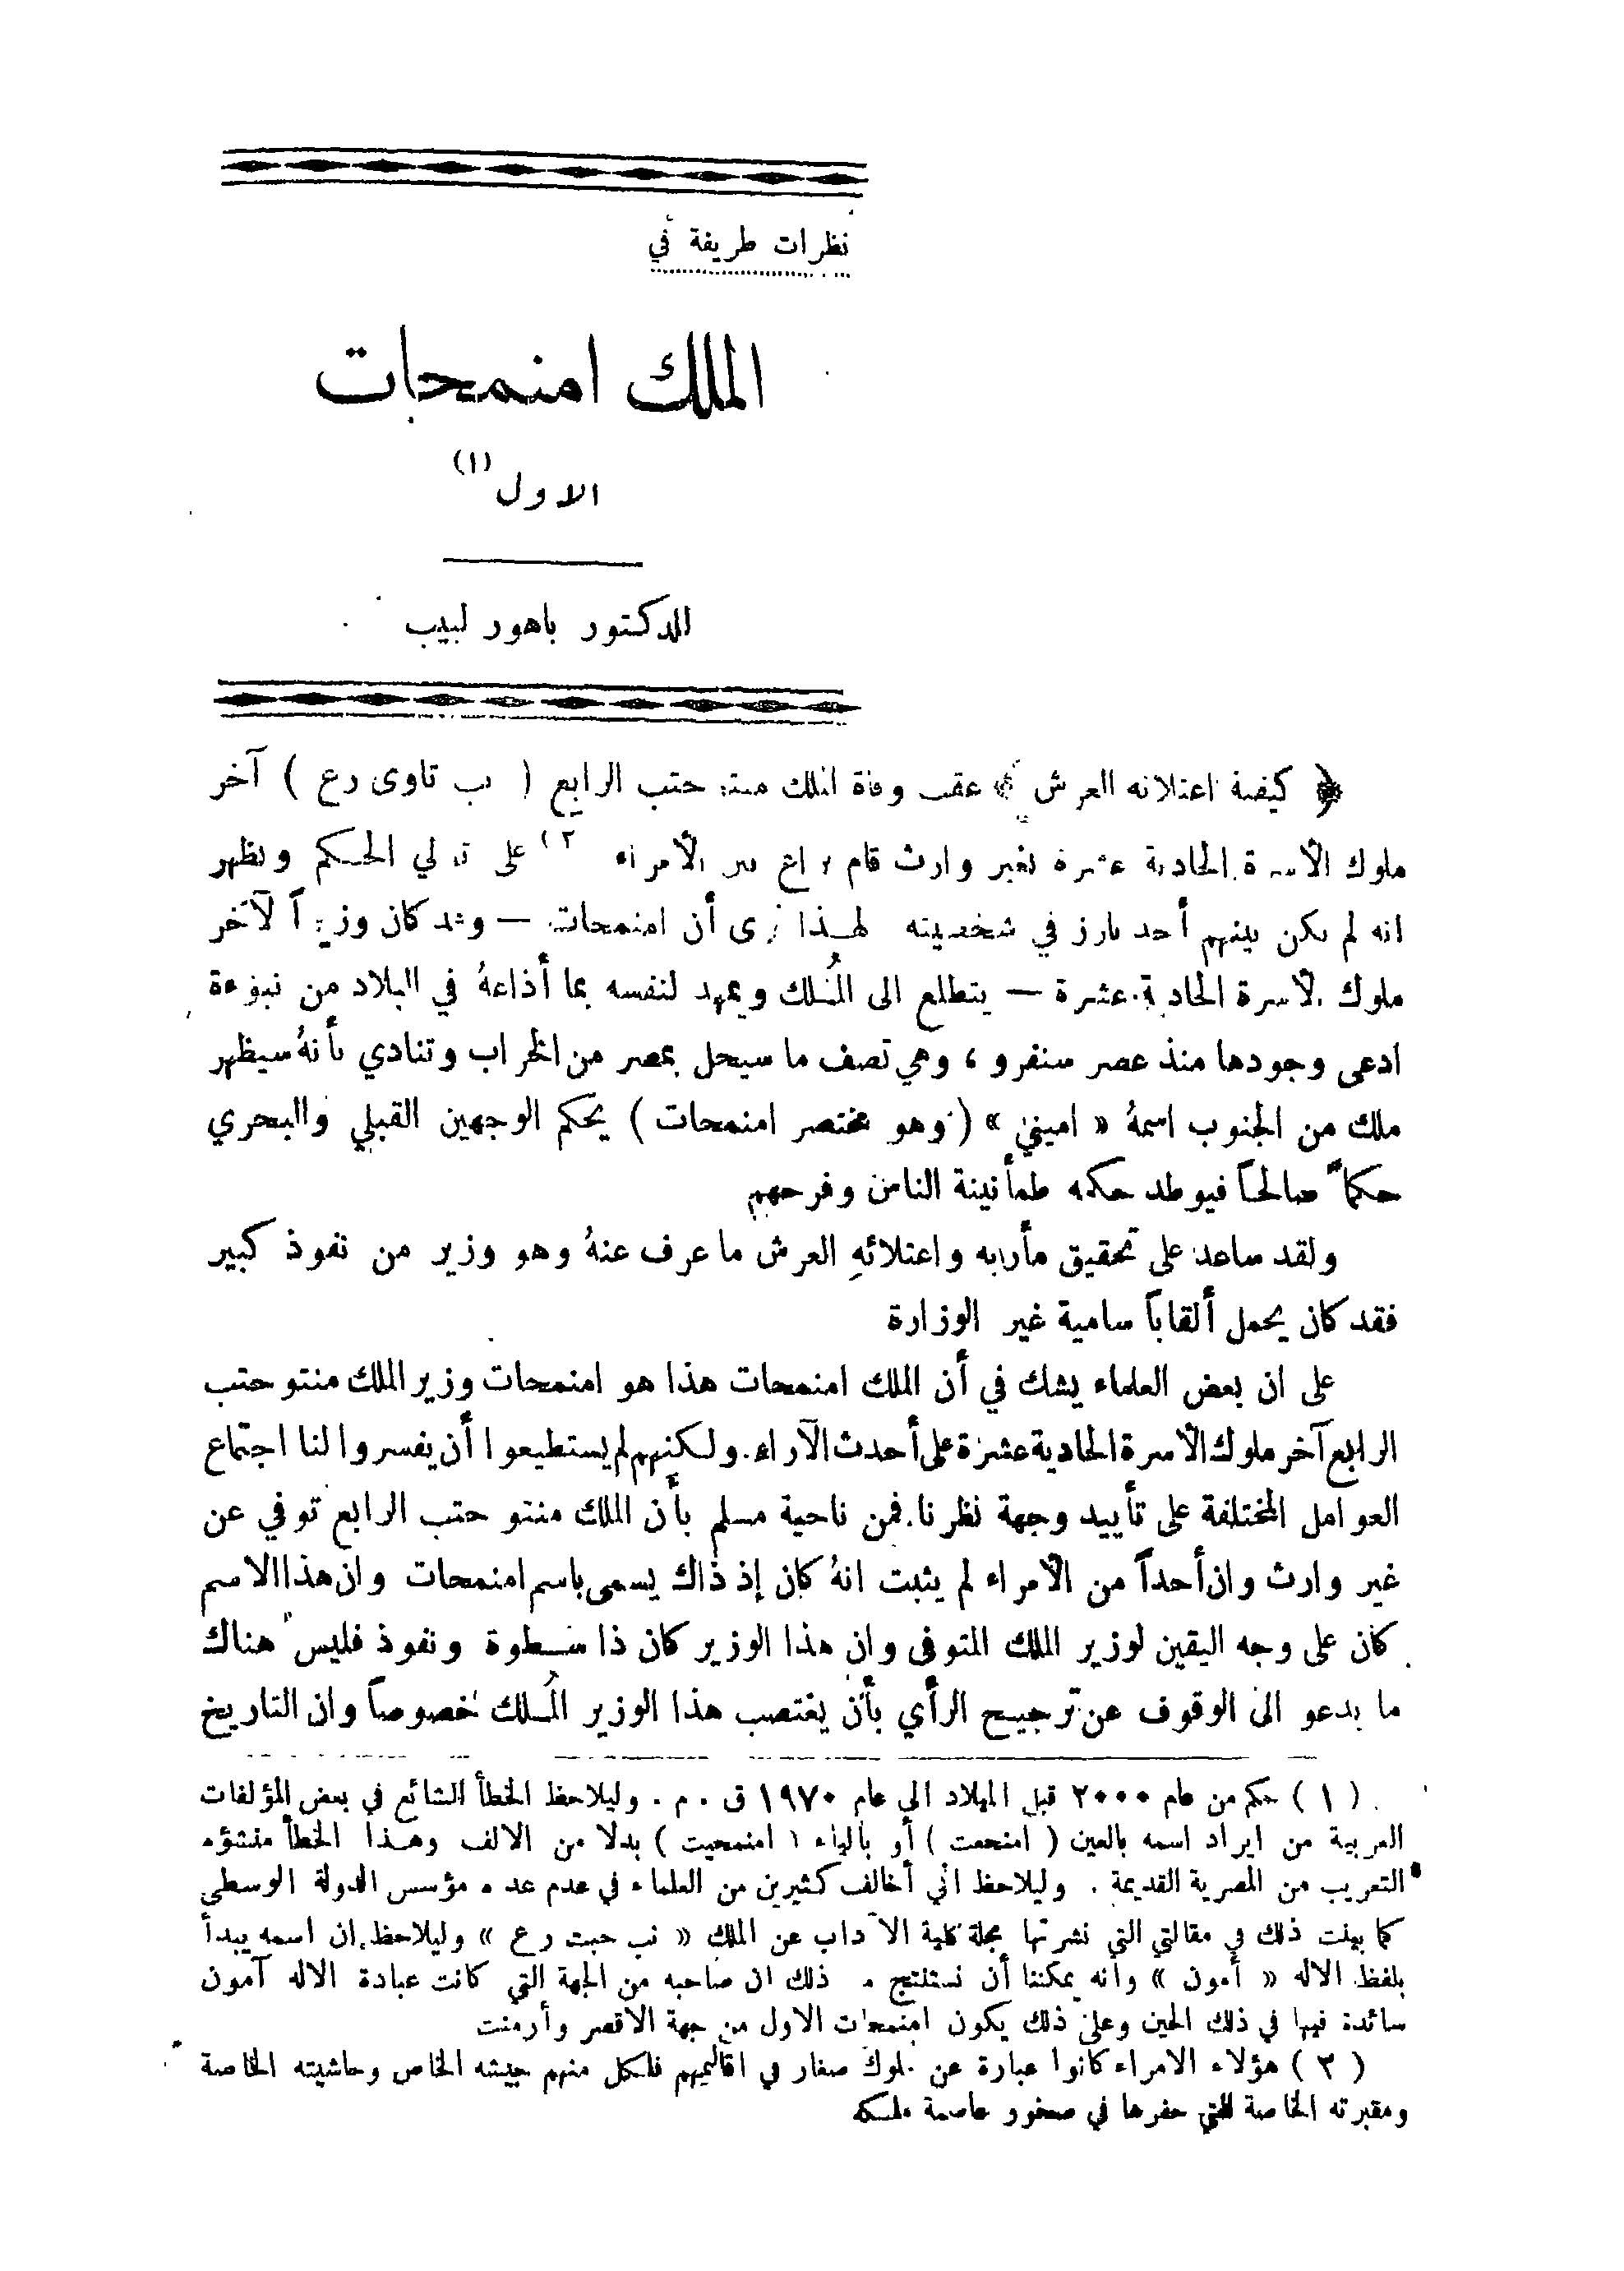 نظرات طريفة في
الملك امنمحات
الاول (١)
للدكتور باهور لبيب
﴿ كيفية اعتلائه العرش ﴾ عقب وفاة الملك حتب الرابع ( نب تاوى رع ) آخر
ملوك الأسرة الحادية عشرة بغير وارث قام نزاع بين الأمراء (٢) على تولي الحكم ويظهر
انه لم يكن بينهم أحد بارز في شخصيته لهذا نرى أن امنمحات — وقد كان وزيراً لآخر
ملوك الأسرة الحادية عشرة — يتطلع الى المُلك ويمهد لنفسه بما أذاعهُ في البلاد من نبوءة
ادعى وجودها منذ عصر سنفرو ، وهي تصف ما سيحل بمصر من الخراب وتنادي بأنهُ سيظهر
ملك من الجنوب اسمهُ « اميني » ( وهو مختصر امنمحات ) يحكم الوجهين القبلي والبحري
حكماً صالحاً فيوطد حكمه طمأنينة الناس وفرحهم
ولقد ساعد على تحقيق مأربه واعتلائهِ العرش ما عرف عنهُ وهو وزير من نفوذ كبير
فقد كان يحمل ألقاباً سامية غير الوزارة
على ان بعض العلماء يشك في أن الملك امنمحات هذا هو امنمحات وزير الملك منتو حتب
الرابع آخر ملوك الأسرة الحادية عشرة على أحدث الآراء. ولكنهم لم يستطيعوا أن يفسروا لنا اجتماع
العوامل المختلفة على تأييد وجهة نظرنا. فمن ناحية مسلم بأن الملك منتو حتب الرابع توفي عن
غير وارث وان أحداً من الأمراء لم يثبت انهُ كان إذ ذاك يسمى باسم امنمحات وان هذا الاسم
كان على وجه اليقين لوزير الملك المتوفى وان هذا الوزير كان ذا سطوة ونفوذ فليس هناك
ما يدعو الى الوقوف عن ترجيح الرأي بأن يغتصب هذا الوزير المُلك خصوصاً وان التاريخ
( ١ ) حكم من عام ٢٠٠٠ قبل الميلاد الى عام ١٩٧٠ ق . م . وليلاحظ الخطأ الشائع في بعض المؤلفات
العربية من ايراد اسمه بالعين ( امنحعت ) أو بالياء ( امنمحيت ) بدلا من الالف وهذا الخطأ منشؤه
التعريب من المصرية القديمة . وليلاحظ اني أخالف كثيرين من العلماء في عدم عده مؤسس الدولة الوسطى
كما بينت ذلك في مقالتي التي نشرتها مجلة كلية الآداب عن الملك « نب حبت رع » وليلاحظ ان اسمه يبدأ
بلفظ الاله « أمون » وانه يمكننا أن نستنتج من ذلك ان صاحبه من الجهة التي كانت عبادة الاله آمون
سائدة فيها في ذلك الحين وعلى ذلك يكون امنمحات الاول من جهة الاقصر وأرمنت
( ٢ ) هؤلاء الامراء كانوا عبارة عن ملوك صغار في اقاليمهم فلكل منهم جيشه الخاص وحاشيته الخاصة
ومقبرته الخاصة التي حفرها في صخور عاصمة ملكه